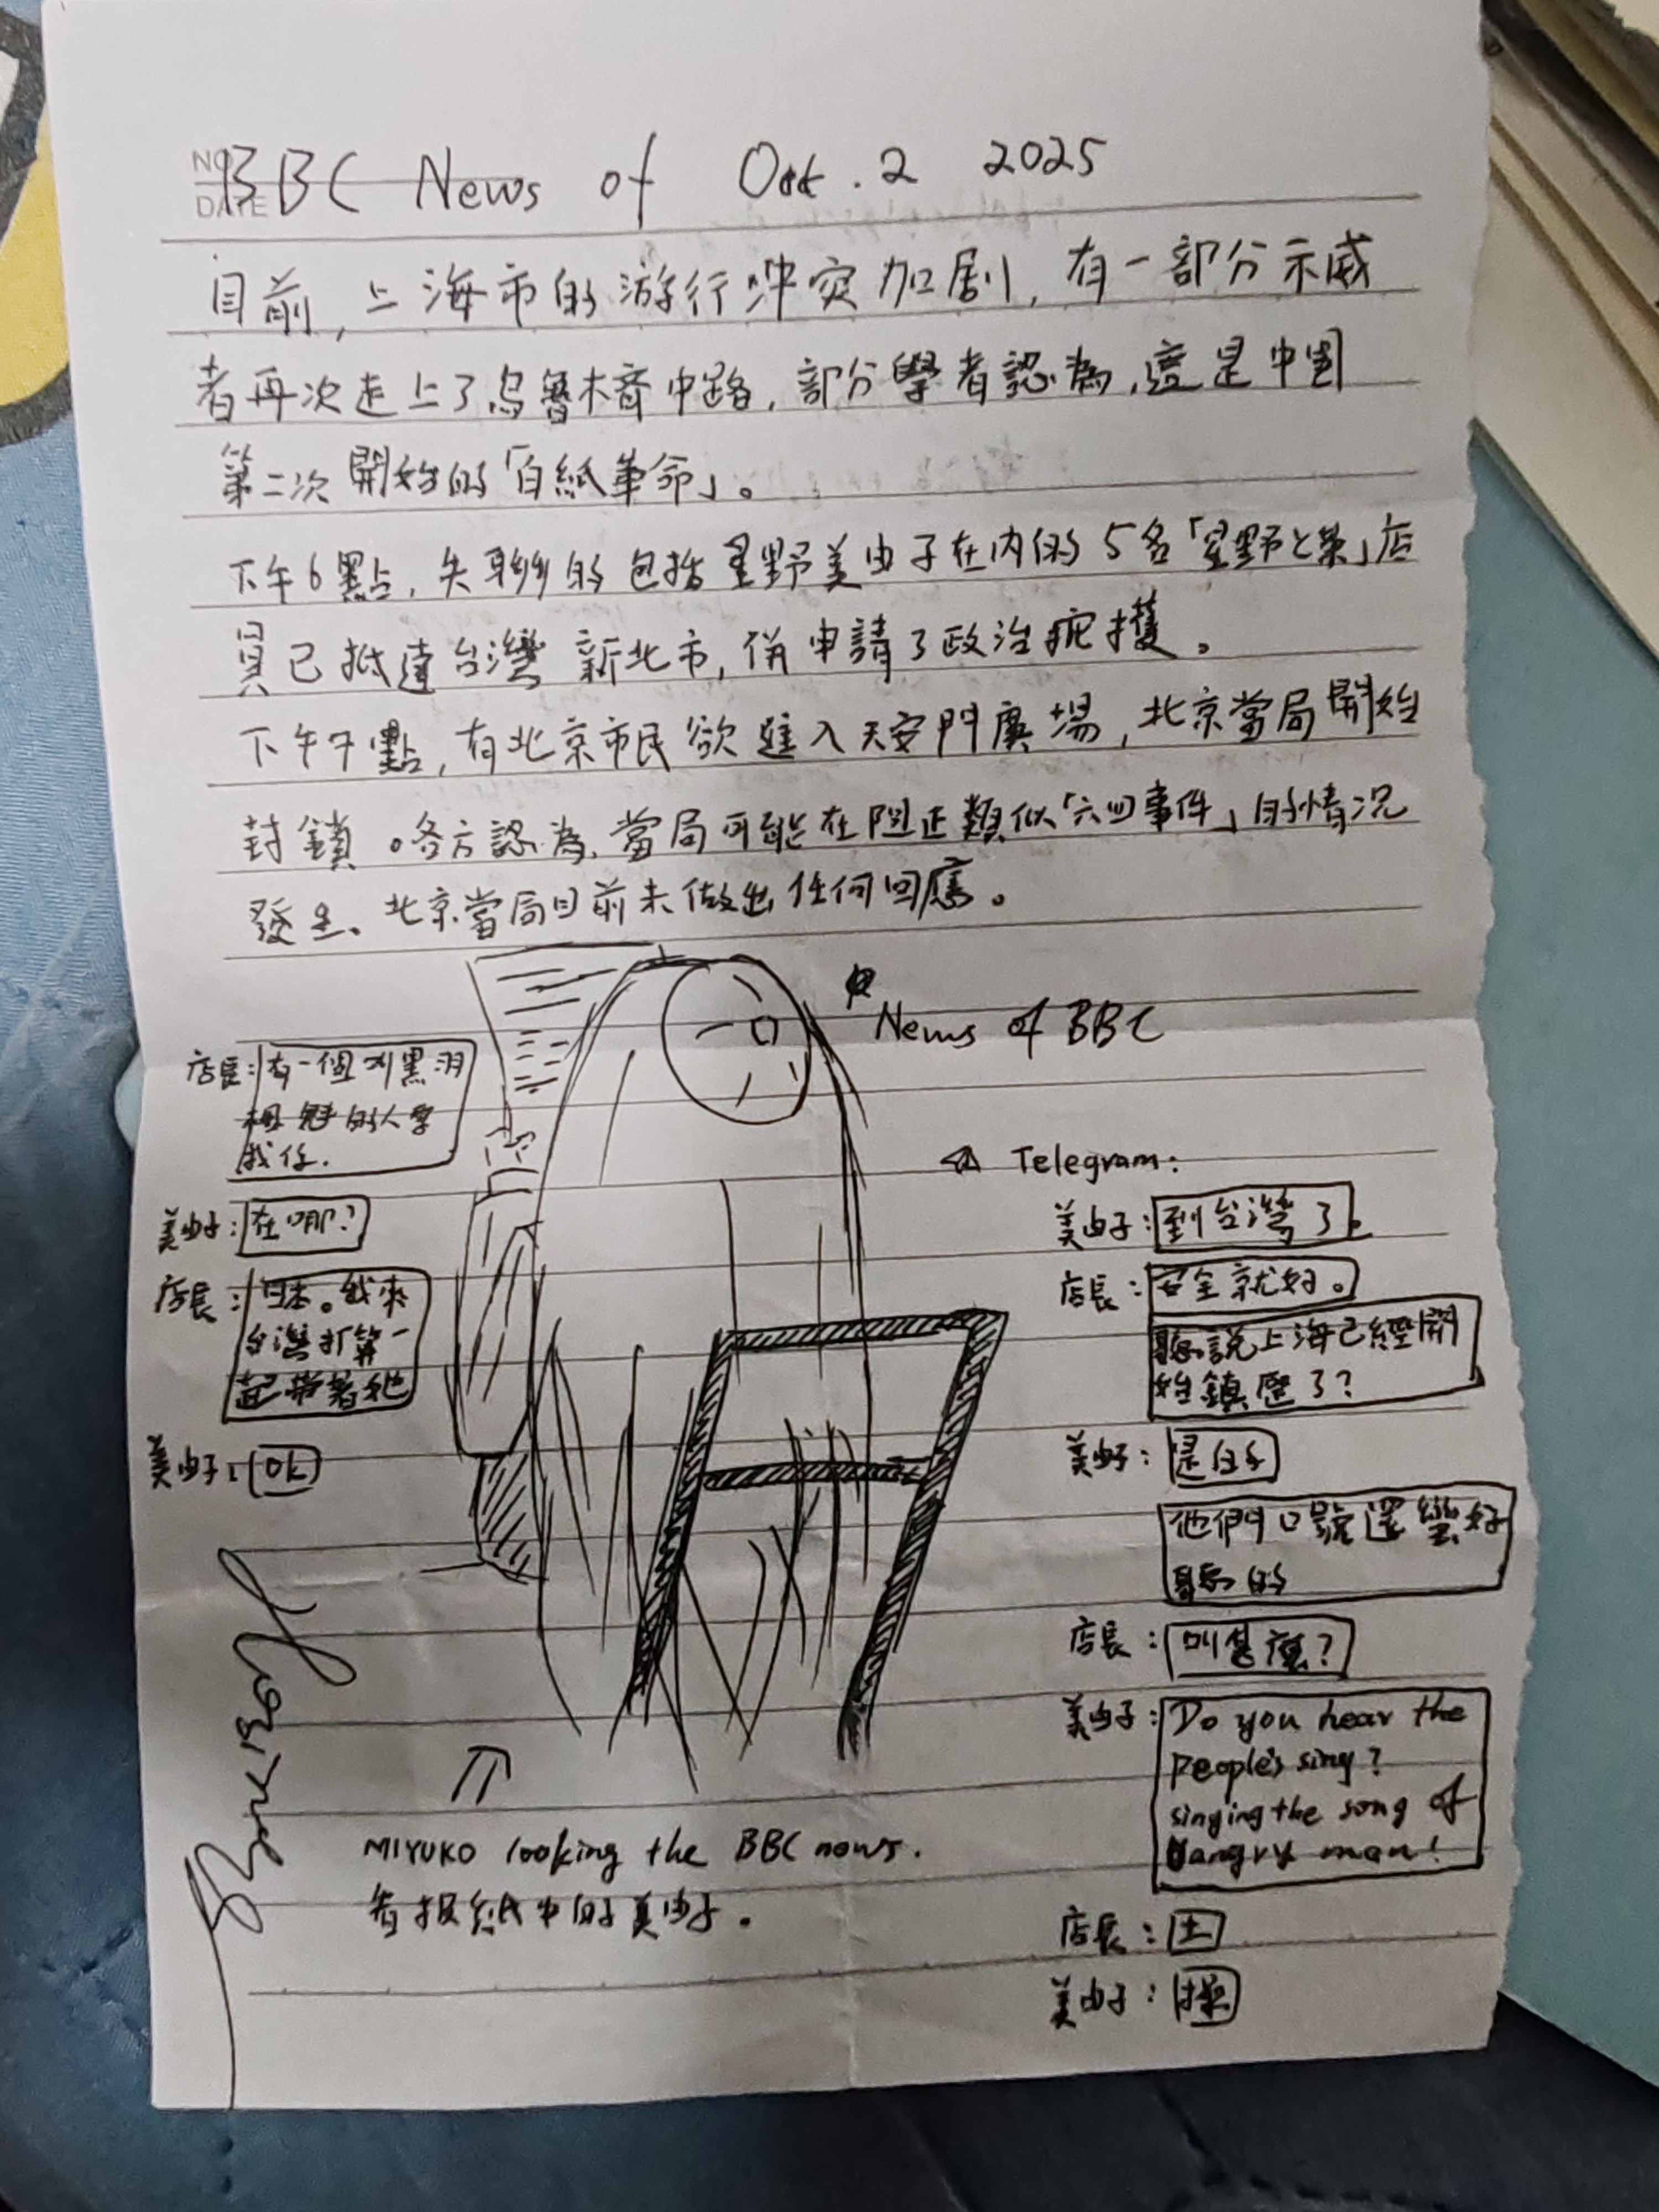 NO
DATE
BBC News of Oct. 2 2025
目前,上海市的游行冲突加剧,有一部分示威
者再次走上了烏魯木齊中路,部分學者認為,這是中國
第二次開始的「白紙革命」。
下午6點,失聯的包括星野美由子在内的5名「星野と」店
員已抵達台灣新北市,併申請了政治庇護。
下午7點,有北京市民欲進入天安門廣場,北京當局開始
封鎖。各方認為,當局可能在阻止類似「六四事件」的情况
發生、北京當局目前未做出任何回應。
News of BBC
店長:有一個叫黑羽
的人要
找你.
美由子:在哪?
店長:日本。我來
台灣打算一
起帶著她
美由子:OK
Telegram:
美由子:到台灣了。
店長:安全就好。
聽說上海已經開
始鎮壓了?
美由子:是的
他們口號還蠻好
聽的
店長:叫甚麼?
美由子:Do you hear the
people's sing?
singing the song of
angry man!
店長:土
美由子:操
MIYUKO looking the BBC news.
看报紙中的美由子。